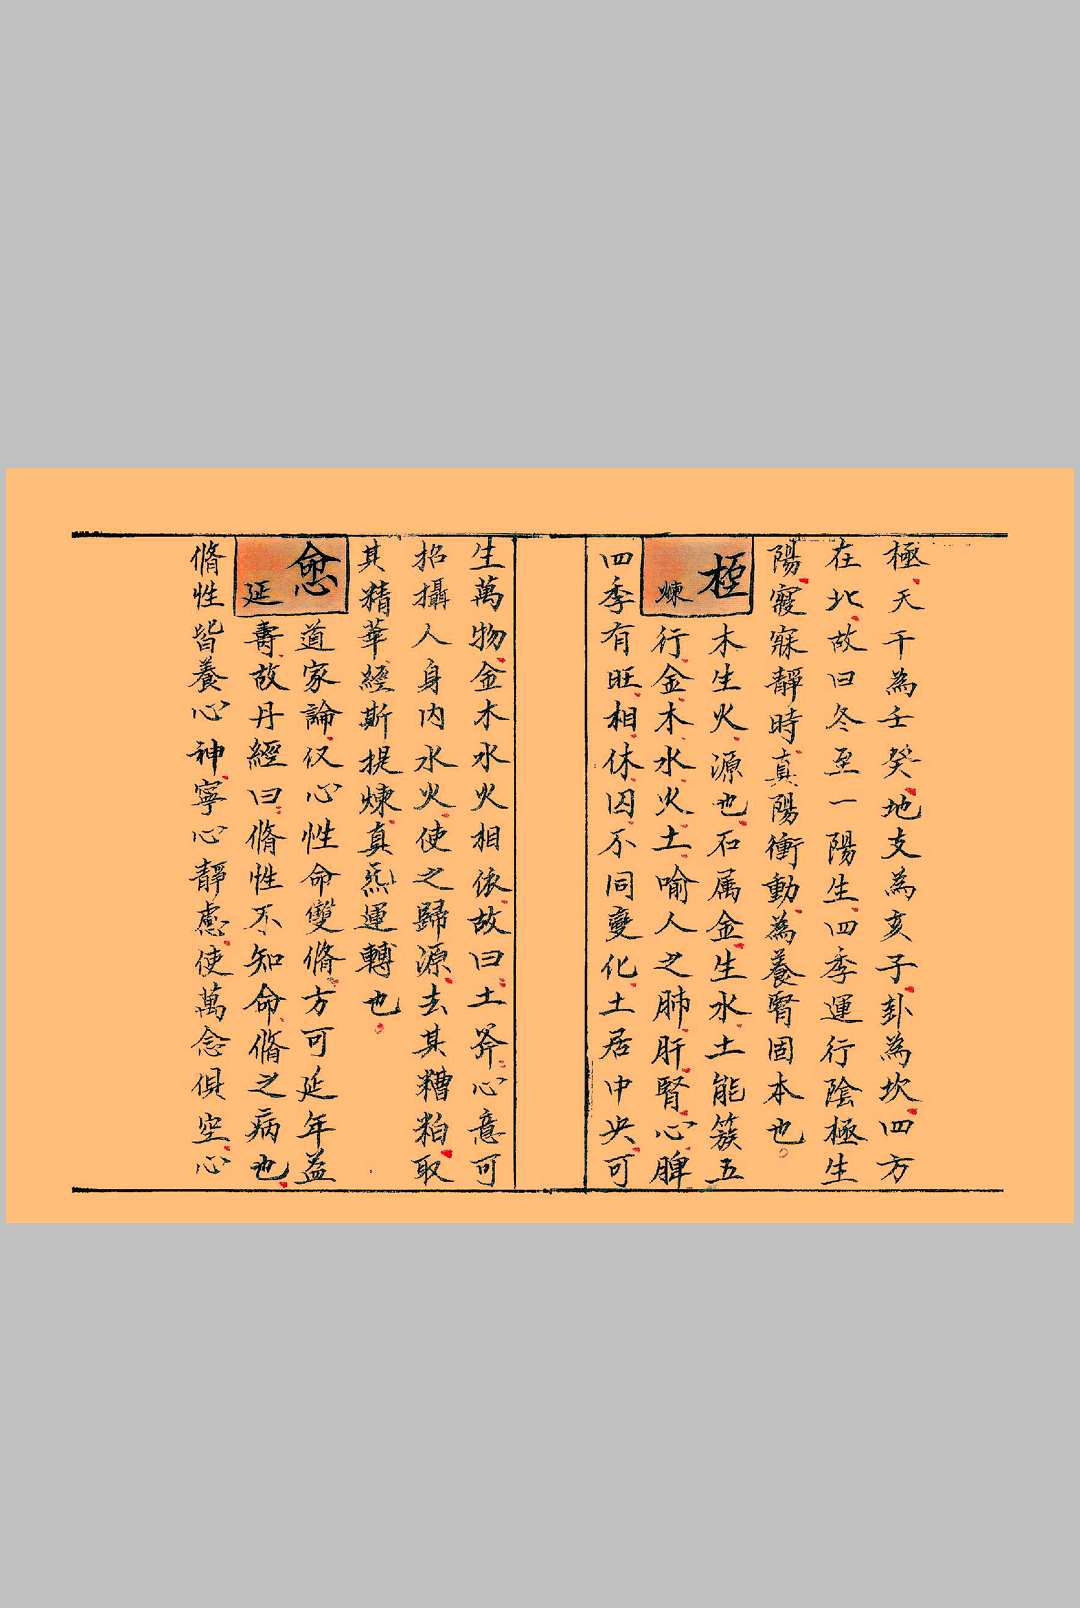 極天干為壬癸地支為亥子卦為坎四方
在北故曰冬至一陽生四季運行陰極生
陽寢寐靜時真陽衝動為養腎固本也
木生火源也石属金生水土能簇五
煉行金木水火土喻人之肺肝腎心脾
四季有旺相休囚不同變化土居中央可
生萬物金木水火相依故曰土斧心意可
招攝人身内水火使之歸源去其糟粕取
其精華經斯提煉真炁運轉也
道家論仅心性命雙脩方可延年益
延壽故丹經曰脩性不知命脩之病也
脩性皆養心神寧心靜慮使萬念俱空心